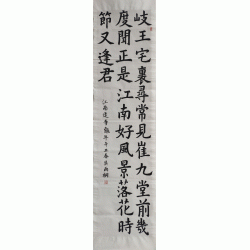 岐王宅裏尋常見崔九堂前幾
度聞正是江南好風景落花時
節又逢君
江南逢李龜年